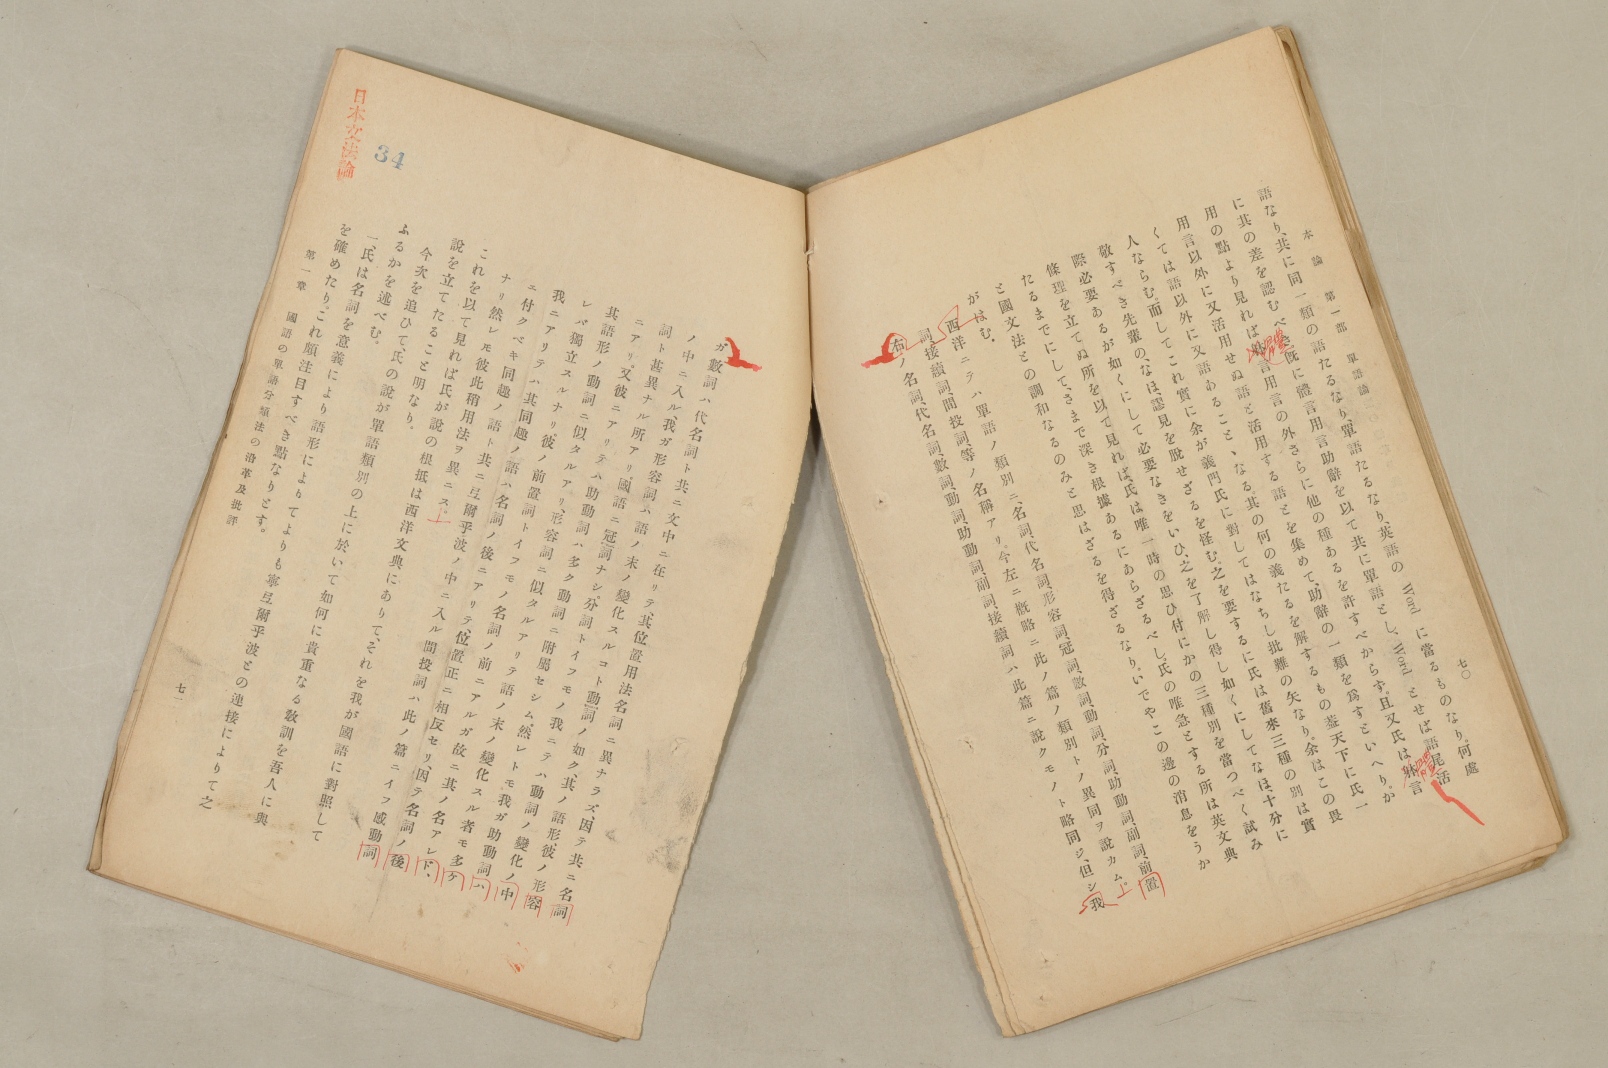 本論　第一部　單語論
七〇
語なり、共に同一類の語たるなり、單語たるなり、英語の Word に當るものなり。何處
に其の差を認むべき、既に體言用言助辭を以て共に單語とし、Word とせば語尾活
用の點より見れば體言用言の外さらに他の種あるを許すべからず。且又氏は體言
用言以外に又活用せぬ語と活用する語とを集めて、助辭の一類を爲すといへり。か
くては語以外に又語あることゝなる。其の何の義たるを解するもの蓋天下に氏一
人ならむ。而してこれ實に余が義門氏に對してはなちし批難の矢なり。余はこの畏
敬すべき先輩の、なほ謬見を脫せざるを怪む。之を要するに氏は舊來三種の別は實
際必要あるが如くにして必要なきをいひ、之を了解し得し如くにしてなほ、十分に
條理を立てぬ所を以て見れば、氏は唯一時の思ひ付にかの三種別を當つべく試み
たるまでにして、さまで深き根據あるにあらざるべし。氏の唯急とする所は英文典
と國文法との調和なるのみと思はざるを得ざるなり。いでやこの邊の消息をうか
がはむ。
西洋ニテハ單語ノ類別ニ名詞、代名詞、形容詞、冠詞、數詞、動詞、分詞、助動詞、副詞、前置
詞、接續詞、間投詞、等ノ名稱アリ。今左ニ概略ニ此ノ篇ノ類別トノ異同ヲ說カム。
右ノ名詞、代名詞、數詞、動詞、助動詞、副詞、接續詞ハ此篇ニ說クモノト略同ジ、但シ我
ガ數詞ハ代名詞ト共ニ文中ニ在リテ、其位置用法名詞ニ異ナラズ、因テ共ニ名詞
ノ中ニ入ル、我ガ形容詞ハ語ノ末ノ變化スルコト動詞ノ如ク、其ノ語形、彼ノ形容
詞ト甚異ナル所アリ。國語ニ冠詞ナシ。分詞トイフモノ我ニテハ動詞ノ變化ノ中
ニアリ。又彼ニアリテハ助動詞ハ多ク動詞ニ附屬セシム。然レトモ我ガ助動詞ハ
其語形ノ動詞ニ似タルアリ、形容詞ニ似タルアリテ語ノ末ノ變化スル者モ多ケ
レバ獨立スルナリ彼ノ前置詞トイフモノ名詞ノ前ニアルガ故ニ其ノ名アレド、
我ニアリテハ其同趣ノ語ハ名詞ノ後ニアリテ、位置正ニ相反セリ、因テ名詞ノ後
ニ付クベキ同趣ノ語ト共ニ弖爾乎波ノ中ニ入ル間投詞ハ此ノ篇ニイフ感動詞
ナリ然レモ彼此稍用法ヲ異ニス。
これを以て見れば氏が說の根抵は西洋文典にありて、それを我が國語に對照して
說を立てたること明なり。
今次を追ひて、氏の說が單語類別の上に於いて如何に貴重なる敎訓を吾人に與
ふるかを述べむ。
一、氏は名詞を意義により語形によりてよりも寧弖爾乎波との連接によりて之
を確めたり。これ頗注目すべき點なりとす。
第一章　國語の單語分類法の沿革及批評
七一
34
日本文法論